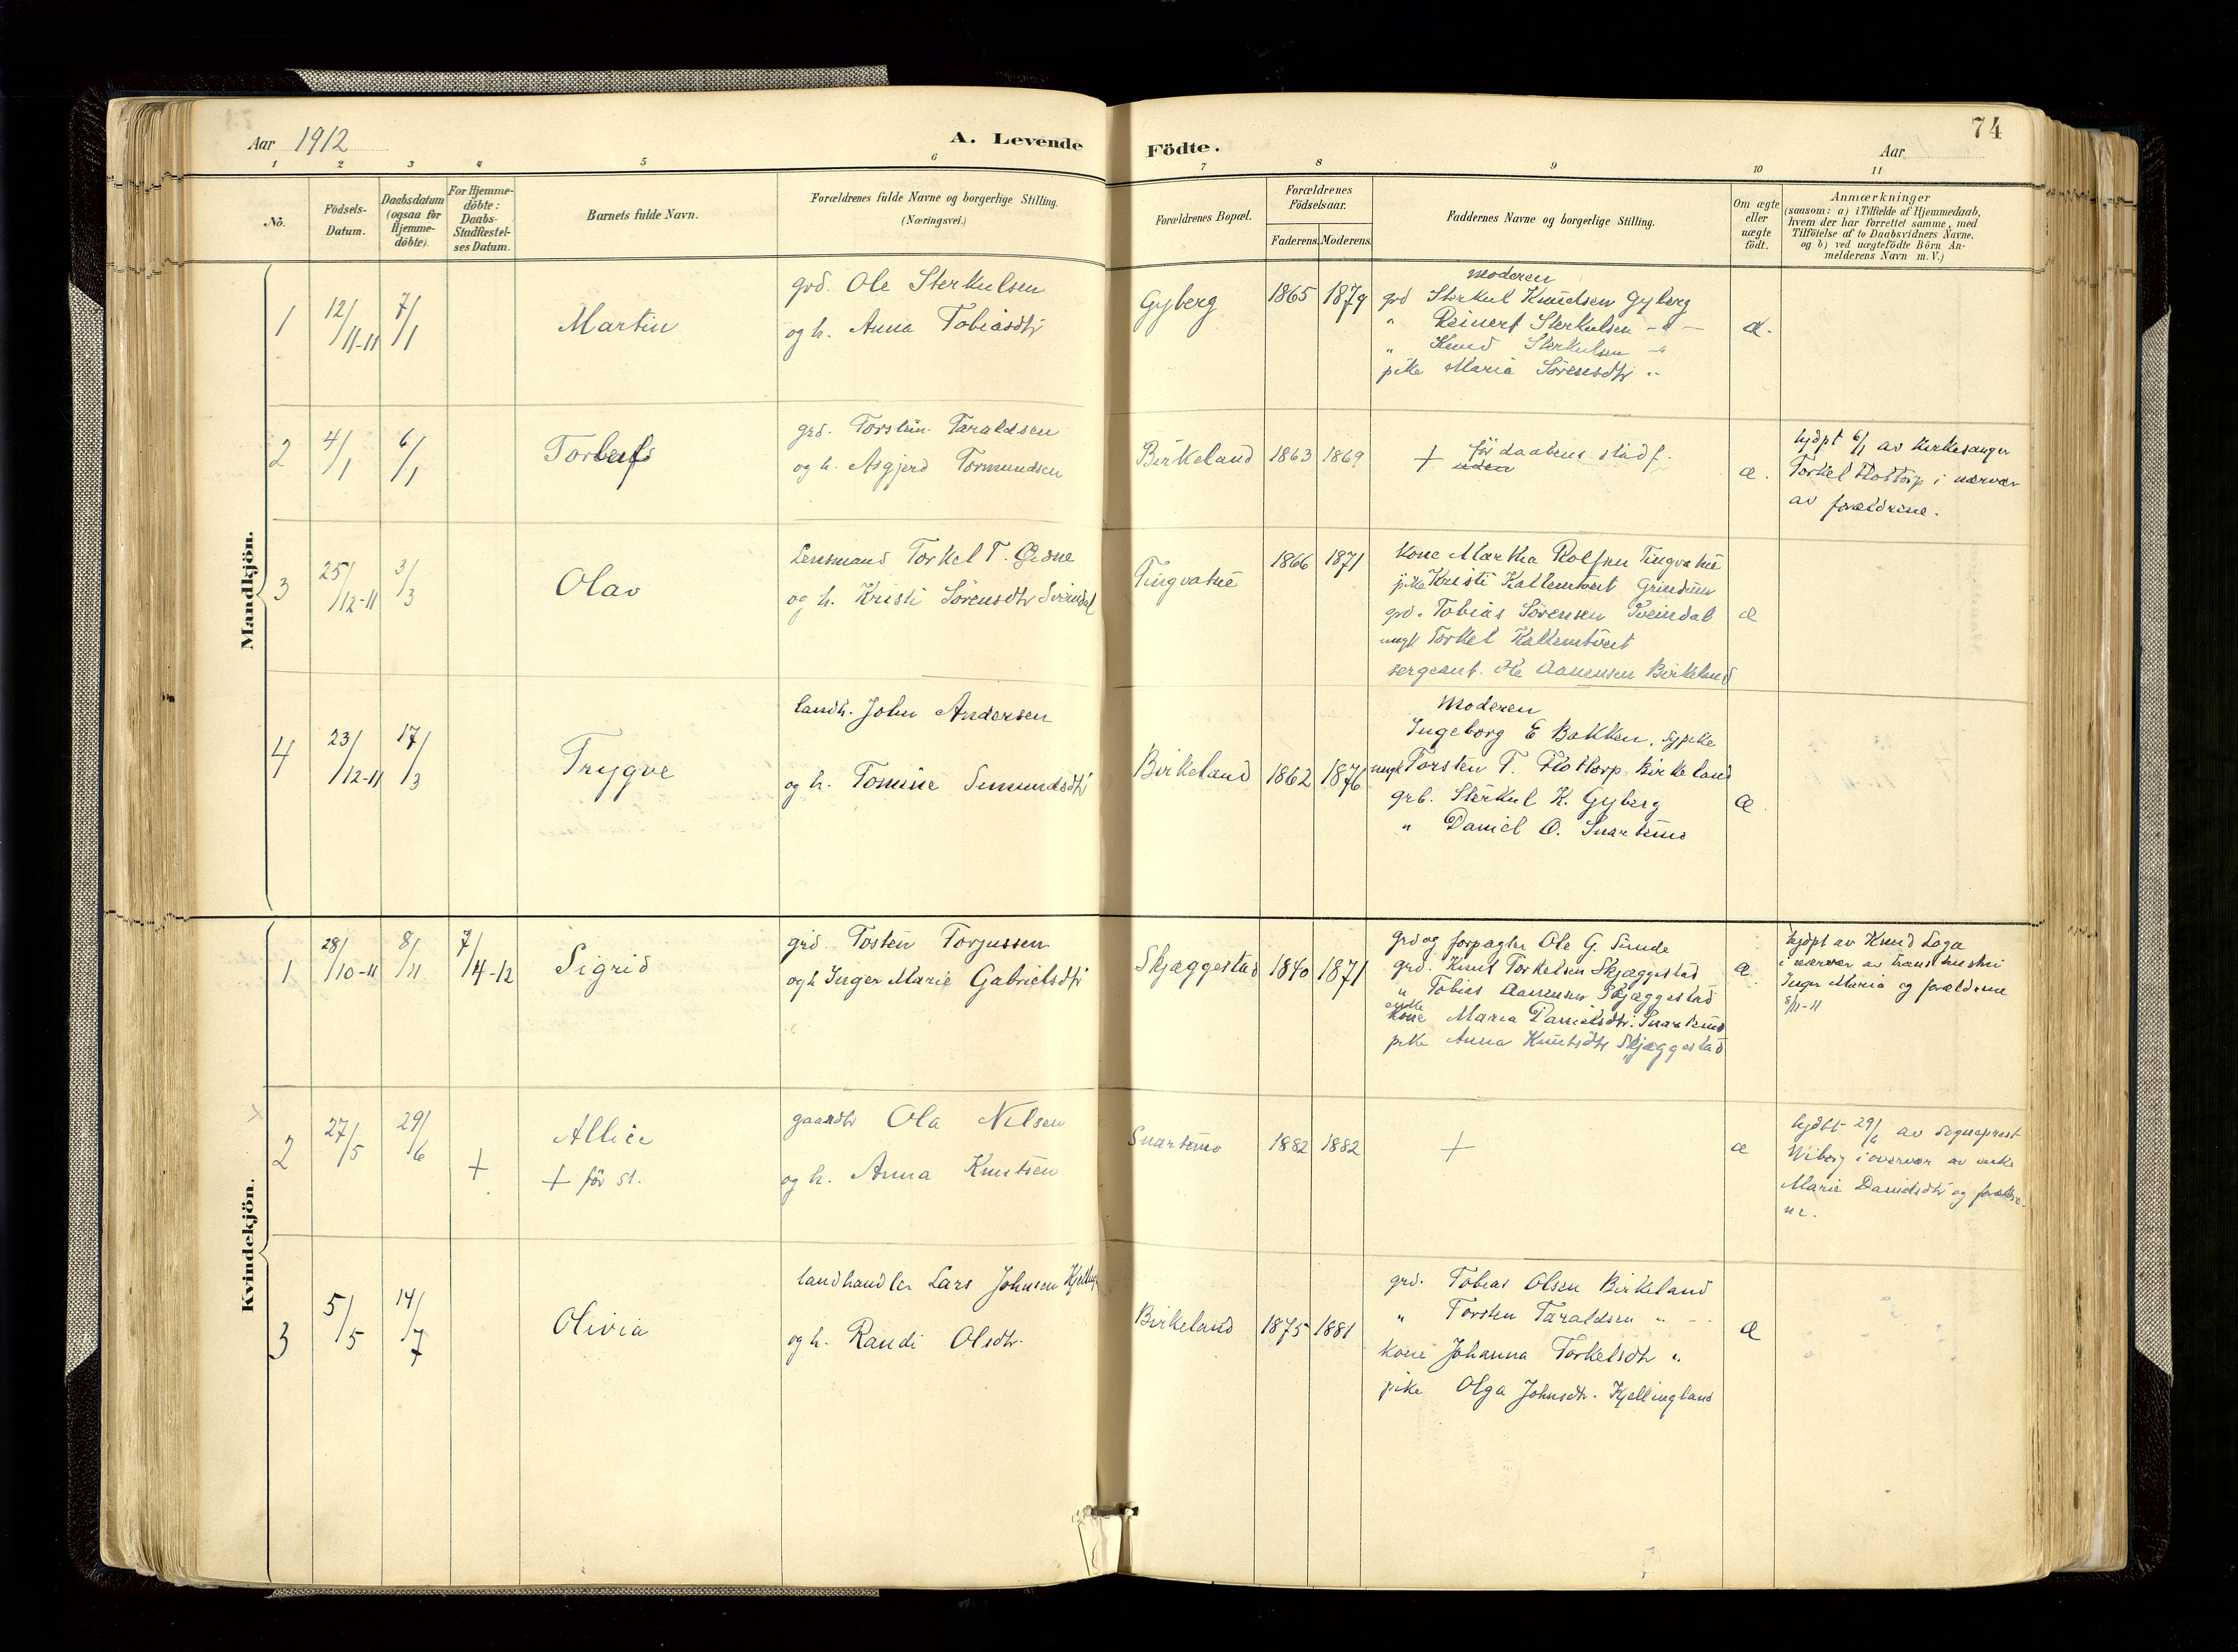 74
Aar 1912
A. Levende Födte.
Aar
1 2 3 4 5 6 7 8 9 10 11
No.
Födsels-
Datum.
Daabsdatum
(ogsaa for
Hjemme-
döbte).
For Hjemme-
döbte:
Daabs-
Stadfæstel-
ses Datum.
Barnets fulde Navn.
Forældrenes fulde Navne og borgerlige Stilling.
(Næringsvei.)
Forældrenes Bopæl.
Forældrenes
Födselsaar.
Faderens. Moderens.
Faddernes Navne og borgerlige Stilling.
Om ægte
eller
uægte
födt.
Anmærkninger
(saasom: a) i Tilfælde af Hjemmedaab,
hvem der har forrettet samme, med
Tilföielse af to Daabsvidners Navne.
og b) ved uægtefödte Börn An-
melderens Navn m. V.)
Mandkjön.
1
12/11-11
7/1
Martin
grd. Ole Sterkulsen
og h. Anna Tobiasdtr
Gyberg
1865 1879
Moderen
grd Sterkul Knudsen Gyberg
" Reinert Sterkulsen - " -
" Knud Sterkulsen - "
pike Maria Sörensdtr "
æ.
2
4/1
6/1
grd. Torstein Taraldsen
og h. Asgjerd Tormundsen
Birkeland
1863 1869
+ för daabens stadf.
uden
æ.
hjdpt 6/1 av kirkesanger
Torkel Flottorp i nærvær
av forældrene.
3
25/12-11
3/3
Olav
Lensmand Torkel T. Eidne
og h. Kristi Sörensdtr Sveindal
Tingvatne
1866 1871
kone Martha Rolfsen Tingvatne
pike Kristi Kallemtveit Grindum
grd. Tobias Sörensen Sveindal
ungk Torkel Kallemtveit
sergeant. Ole Aanensen Birkeland
æ
4
23/12-11
17/3
Trygve
landh. John Andersen
og h. Tomine Simundsdtr
Birkeland
1862 1876
Moderen
Ingeborg E Bakken, sypike
ungk Torsten T. Flottorp Birkeland
grb. Sterkul K. Gyberg
" Daniel O. Snartemo
æ.
Kvindekjön.
1
28/10-11
8/11
7/4-12
Sigrid
grd. Tosten Torjussen
og h Inger Marie Gabrielsdtr
Skjæggestad
1840 1871
grd og forpagter Ole G. Sunde
grd. Knut Torkelsen Skjæggestad
" Tobias Aanensen Skjæggestad
enke
kone Maria Danielsdtr. Snartemo
pike Anna Knutsdtr Skjæggestad
æ.
hjdpt av Knud Loga
i nærvær av hans hustru
Inger Maria og forældrene
8/11-11
2
27/5
29/6
+
Allice
+ för st.
gaardbr Ola Nilsen
og h. Anna Knutsen
Snartemo
1882 1882
+
æ
hjdbt 29/6 av sogneprest
Wiborg i overvær av enke
Marie Danielsdtr og forældre-
ne.
3
5/5
14/7
Olivia
landhandler Lars Johnsen
og h. Randi Olsdtr.
Birkeland
1875 1881
grd. Tobias Olsen Birkeland
" Torsten Taraldsen " -
kone Johanna Torkelsdtr "
pike Olga Johnsdtr. Kjellingland
æ